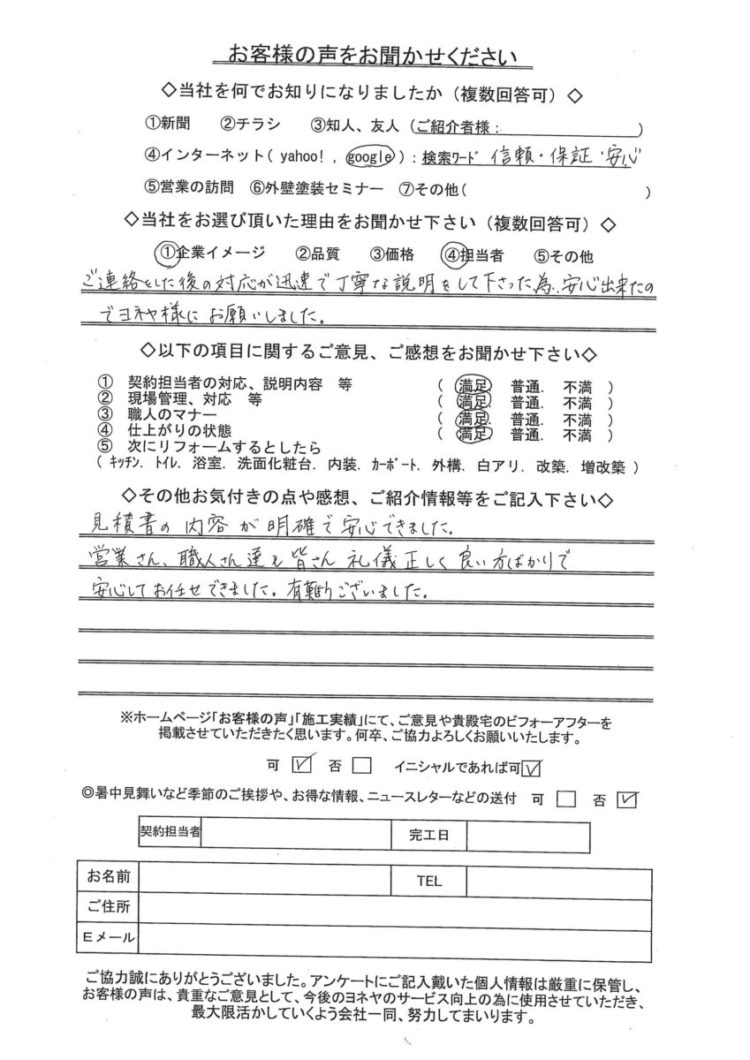 お客様の声をお聞かせください
◇当社を何でお知りになりましたか（複数回答可）◇
①新聞 ②チラシ ③知人、友人（ご紹介者様： ）
④インターネット( yahoo! , google )：検索ﾜｰﾄﾞ 信頼・保証・安心
⑤営業の訪問 ⑥外壁塗装セミナー ⑦その他( )
◇当社をお選び頂いた理由をお聞かせ下さい（複数回答可）◇
①企業イメージ ②品質 ③価格 ④担当者 ⑤その他
ご連絡をした後の対応が迅速で丁寧な説明をして下さった為、安心出来たの
でヨネヤ様にお願いしました。
◇以下の項目に関するご意見、ご感想をお聞かせ下さい◇
① 契約担当者の対応、説明内容 等 （ 満足. 普通. 不満 ）
② 現場管理、対応 等 （ 満足. 普通. 不満 ）
③ 職人のマナー （ 満足. 普通. 不満 ）
④ 仕上がりの状態 （ 満足. 普通. 不満 ）
⑤ 次にリフォームするとしたら
( ｷｯﾁﾝ. ﾄｲﾚ. 浴室. 洗面化粧台. 内装. ｶｰﾎﾟｰﾄ. 外構. 白アリ. 改築. 増改築 )
◇その他お気付きの点や感想、ご紹介情報等をご記入下さい◇
見積書の内容が明確で安心できました。
営業さん、職人さん達も皆さん礼儀正しく良い方ばかりで
安心してお任せできました。有難うございました。
※ホームページ「お客様の声」「施工実績」にて、ご意見や貴殿宅のビフォーアフターを
掲載させていただきたく思います。何卒、ご協力よろしくお願いいたします。
可 ☑ 否 □ イニシャルであれば可☑
◎暑中見舞いなど季節のご挨拶や、お得な情報、ニュースレターなどの送付 可 □ 否 ☑
契約担当者 完工日
お名前 TEL
ご住所
Eメール
ご協力誠にありがとうございました。アンケートにご記入戴いた個人情報は厳重に保管し、
お客様の声は、貴重なご意見として、今後のヨネヤのサービス向上の為に使用させていただき、
最大限活かしていくよう会社一同、努力してまいります。